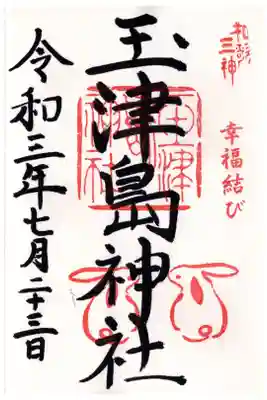 和歌
三神
幸福結び
玉津島神社
令和三年七月二十三日